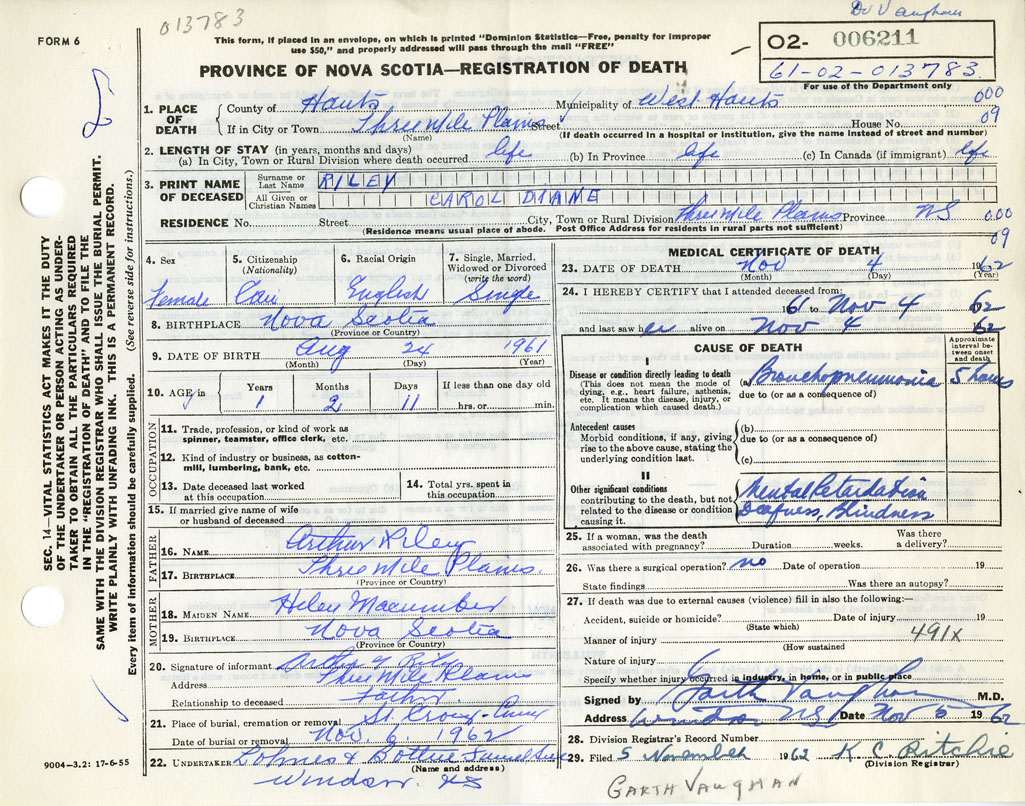 013783
Dr Vaughan
FORM 6
This form, if placed in an envelope, on which is printed "Dominion Statistics—Free, penalty for improper
use $50," and properly addressed will pass through the mail "FREE"
O2- 006211
61-02-013783.
For use of the Department only
PROVINCE OF NOVA SCOTIA—REGISTRATION OF DEATH
1. PLACE OF DEATH
County of Hants Municipality of West Hants 000
If in City or Town Three Mile Plains Street House No. 09
(Name) (If death occurred in a hospital or institution, give the name instead of street and number)
2. LENGTH OF STAY (in years, months and days)
(a) In City, Town or Rural Division where death occurred life (b) In Province life (c) In Canada (if immigrant) life
3. PRINT NAME OF DECEASED
Surname or Last Name RILEY
All Given or Christian Names CAROL DIANE
RESIDENCE No. Street City, Town or Rural Division Three Mile Plains Province NS 000
(Residence means usual place of abode. Post Office Address for residents in rural parts not sufficient) 09
4. Sex Female
5. Citizenship (Nationality) Can
6. Racial Origin English
7. Single, Married, Widowed or Divorced (write the word) Single
8. BIRTHPLACE Nova Scotia
(Province or Country)
9. DATE OF BIRTH Aug 24 1961
(Month) (Day) (Year)
10. AGE in Years 1 Months 2 Days 11 If less than one day old hrs. or min.
OCCUPATION
11. Trade, profession, or kind of work as
spinner, teamster, office clerk, etc.
12. Kind of industry or business, as cotton-
mill, lumbering, bank, etc.
13. Date deceased last worked
at this occupation
14. Total yrs. spent in
this occupation
15. If married give name of wife
or husband of deceased
FATHER
16. NAME Arthur Riley
17. BIRTHPLACE Three Mile Plains
(Province or Country)
MOTHER
18. MAIDEN NAME Helen Macumber
19. BIRTHPLACE Nova Scotia
(Province or Country)
20. Signature of informant Arthur Riley
Address Three Mile Plains
Relationship to deceased Father
21. Place of burial, cremation or removal St. Croix
Date of burial or removal Nov. 6, 1962
22. UNDERTAKER
(Name and address)
Windsor, NS
9004-3.2: 17-6-55
MEDICAL CERTIFICATE OF DEATH
23. DATE OF DEATH Nov 4 1962
(Month) (Day) (Year)
24. I HEREBY CERTIFY that I attended deceased from:
61 to Nov 4 62
and last saw her alive on Nov 4 62
CAUSE OF DEATH
Approximate interval between onset and death
I
Disease or condition directly leading to death
(This does not mean the mode of
dying, e.g., heart failure, asthenia,
etc. It means the disease, injury, or
complication which caused death.)
(a) Bronchopneumonia 5 hours
due to (or as a consequence of)
Antecedent causes
Morbid conditions, if any, giving
rise to the above cause, stating the
underlying condition last.
(b)
due to (or as a consequence of)
(c)
II
Other significant conditions
contributing to the death, but not
related to the disease or condition
causing it.
Mental Retardation
Deafness, Blindness
25. If a woman, was the death
associated with pregnancy? Duration weeks. Was there a delivery?
26. Was there a surgical operation? no Date of operation 19
State findings Was there an autopsy?
27. If death was due to external causes (violence) fill in also the following:—
Accident, suicide or homicide? Date of injury 19
(State which)
Manner of injury 491x
(How sustained
Nature of injury
Specify whether injury occurred in industry, in home, or in public place
Signed by Garth Vaughan M.D.
Address Windsor NS Date Nov 5 1962
28. Division Registrar's Record Number
29. Filed 5 November 1962 K C Ritchie
(Division Registrar)
GARTH VAUGHAN
SEC. 14—VITAL STATISTICS ACT MAKES IT THE DUTY
OF THE UNDERTAKER OR PERSON ACTING AS UNDER-
TAKER TO OBTAIN ALL THE PARTICULARS REQUIRED
IN THE "REGISTRATION OF DEATH" AND TO FILE THE
SAME WITH THE DIVISION REGISTRAR WHO SHALL ISSUE THE BURIAL PERMIT.
WRITE PLAINLY WITH UNFADING INK. THIS IS A PERMANENT RECORD.
Every item of information should be carefully supplied. (See reverse side for instructions.)